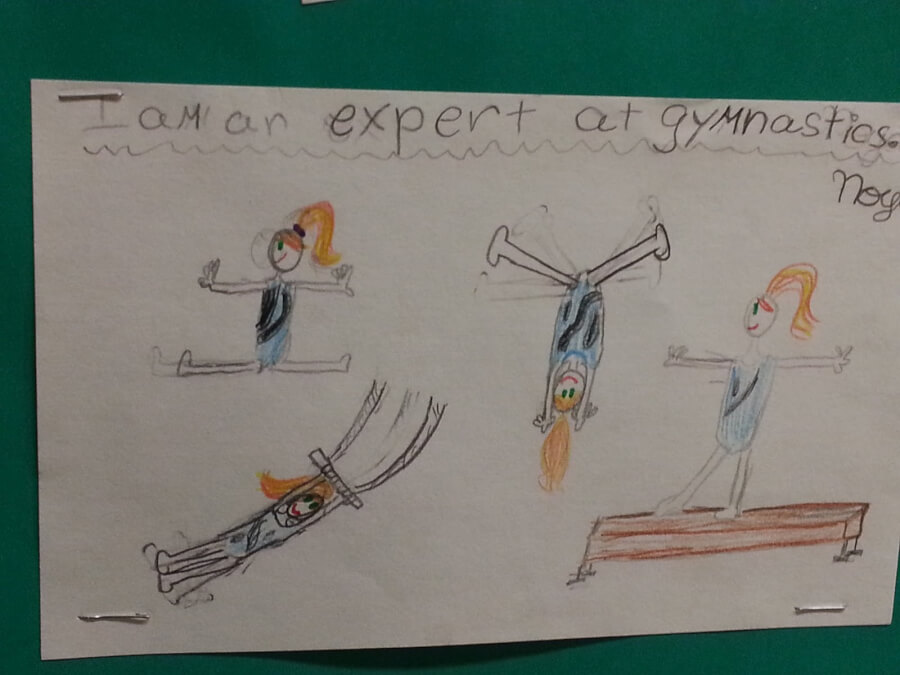 I am an expert at gymnastics.
Noy